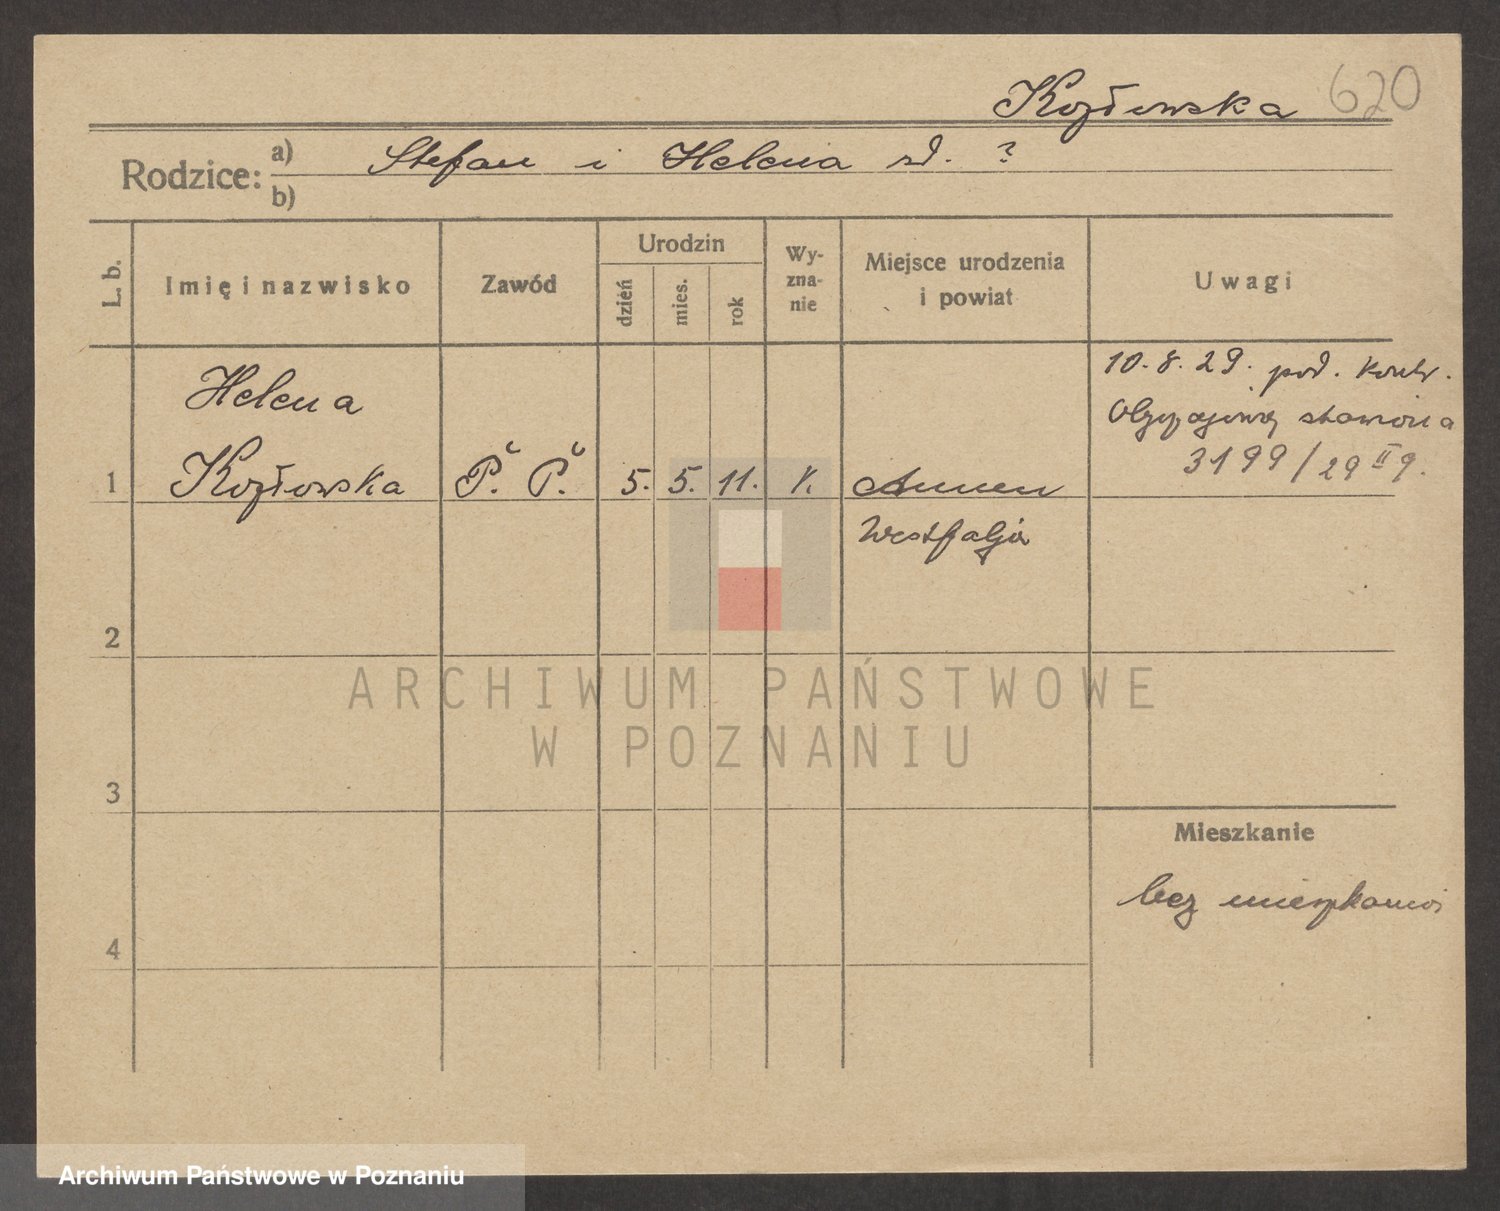 Kozłowska 620
Rodzice: a) Stefan i Helena zd. ?
b)
L. b.
Imię i nazwisko
Zawód
Urodzin
dzień
mies.
rok
Wy-
zna-
nie
Miejsce urodzenia
i powiat
Uwagi
Helena
Kozłowska
1
P. P.
5. 5. 11. k.
Annen
Westfalja
10.8.29. pod. kontr.
Obyczajową stawiona
3199/29 II 9.
2
3
4
Mieszkanie
bez mieszkania
ARCHIWUM PAŃSTWOWE
W POZNANIU
Archiwum Państwowe w Poznaniu